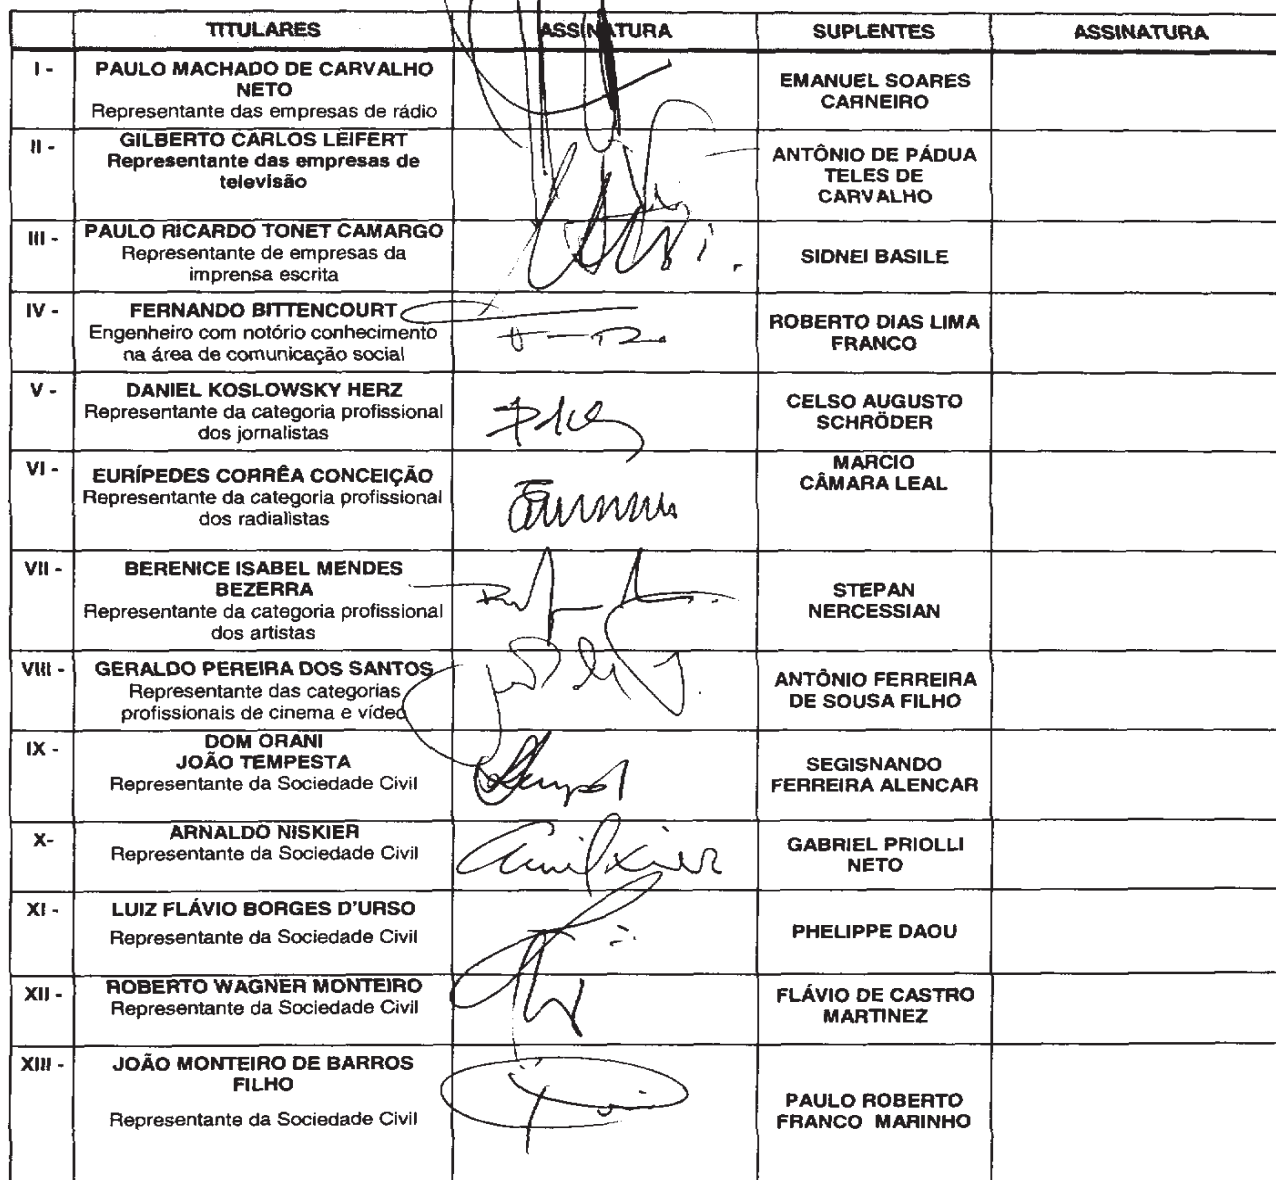 TITULARES ASSINATURA SUPLENTES ASSINATURA
I - PAULO MACHADO DE CARVALHO
NETO
Representante das empresas de rádio
EMANUEL SOARES
CARNEIRO
II - GILBERTO CARLOS LEIFERT
Representante das empresas de
televisão
ANTÔNIO DE PÁDUA
TELES DE
CARVALHO
III - PAULO RICARDO TONET CAMARGO
Representante de empresas da
imprensa escrita
SIDNEI BASILE
IV - FERNANDO BITTENCOURT
Engenheiro com notório conhecimento
na área de comunicação social
ROBERTO DIAS LIMA
FRANCO
V - DANIEL KOSLOWSKY HERZ
Representante da categoria profissional
dos jornalistas
CELSO AUGUSTO
SCHRÖDER
VI - EURÍPEDES CORRÊA CONCEIÇÃO
Representante da categoria profissional
dos radialistas
MARCIO
CÂMARA LEAL
VII - BERENICE ISABEL MENDES
BEZERRA
Representante da categoria profissional
dos artistas
STEPAN
NERCESSIAN
VIII - GERALDO PEREIRA DOS SANTOS
Representante das categorias
profissionais de cinema e vídeo
ANTÔNIO FERREIRA
DE SOUSA FILHO
IX - DOM ORANI
JOÃO TEMPESTA
Representante da Sociedade Civil
SEGISNANDO
FERREIRA ALENCAR
X- ARNALDO NISKIER
Representante da Sociedade Civil
GABRIEL PRIOLLI
NETO
XI - LUIZ FLÁVIO BORGES D'URSO
Representante da Sociedade Civil
PHELIPPE DAOU
XII - ROBERTO WAGNER MONTEIRO
Representante da Sociedade Civil
FLÁVIO DE CASTRO
MARTINEZ
XIII - JOÃO MONTEIRO DE BARROS
FILHO
Representante da Sociedade Civil
PAULO ROBERTO
FRANCO MARINHO